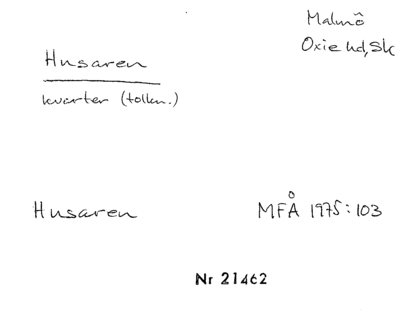 Malmö
Oxie hd, Sk
Husaren
kvarter (tolkn.)
Husaren
MFÅ 1975:103
Nr 21462